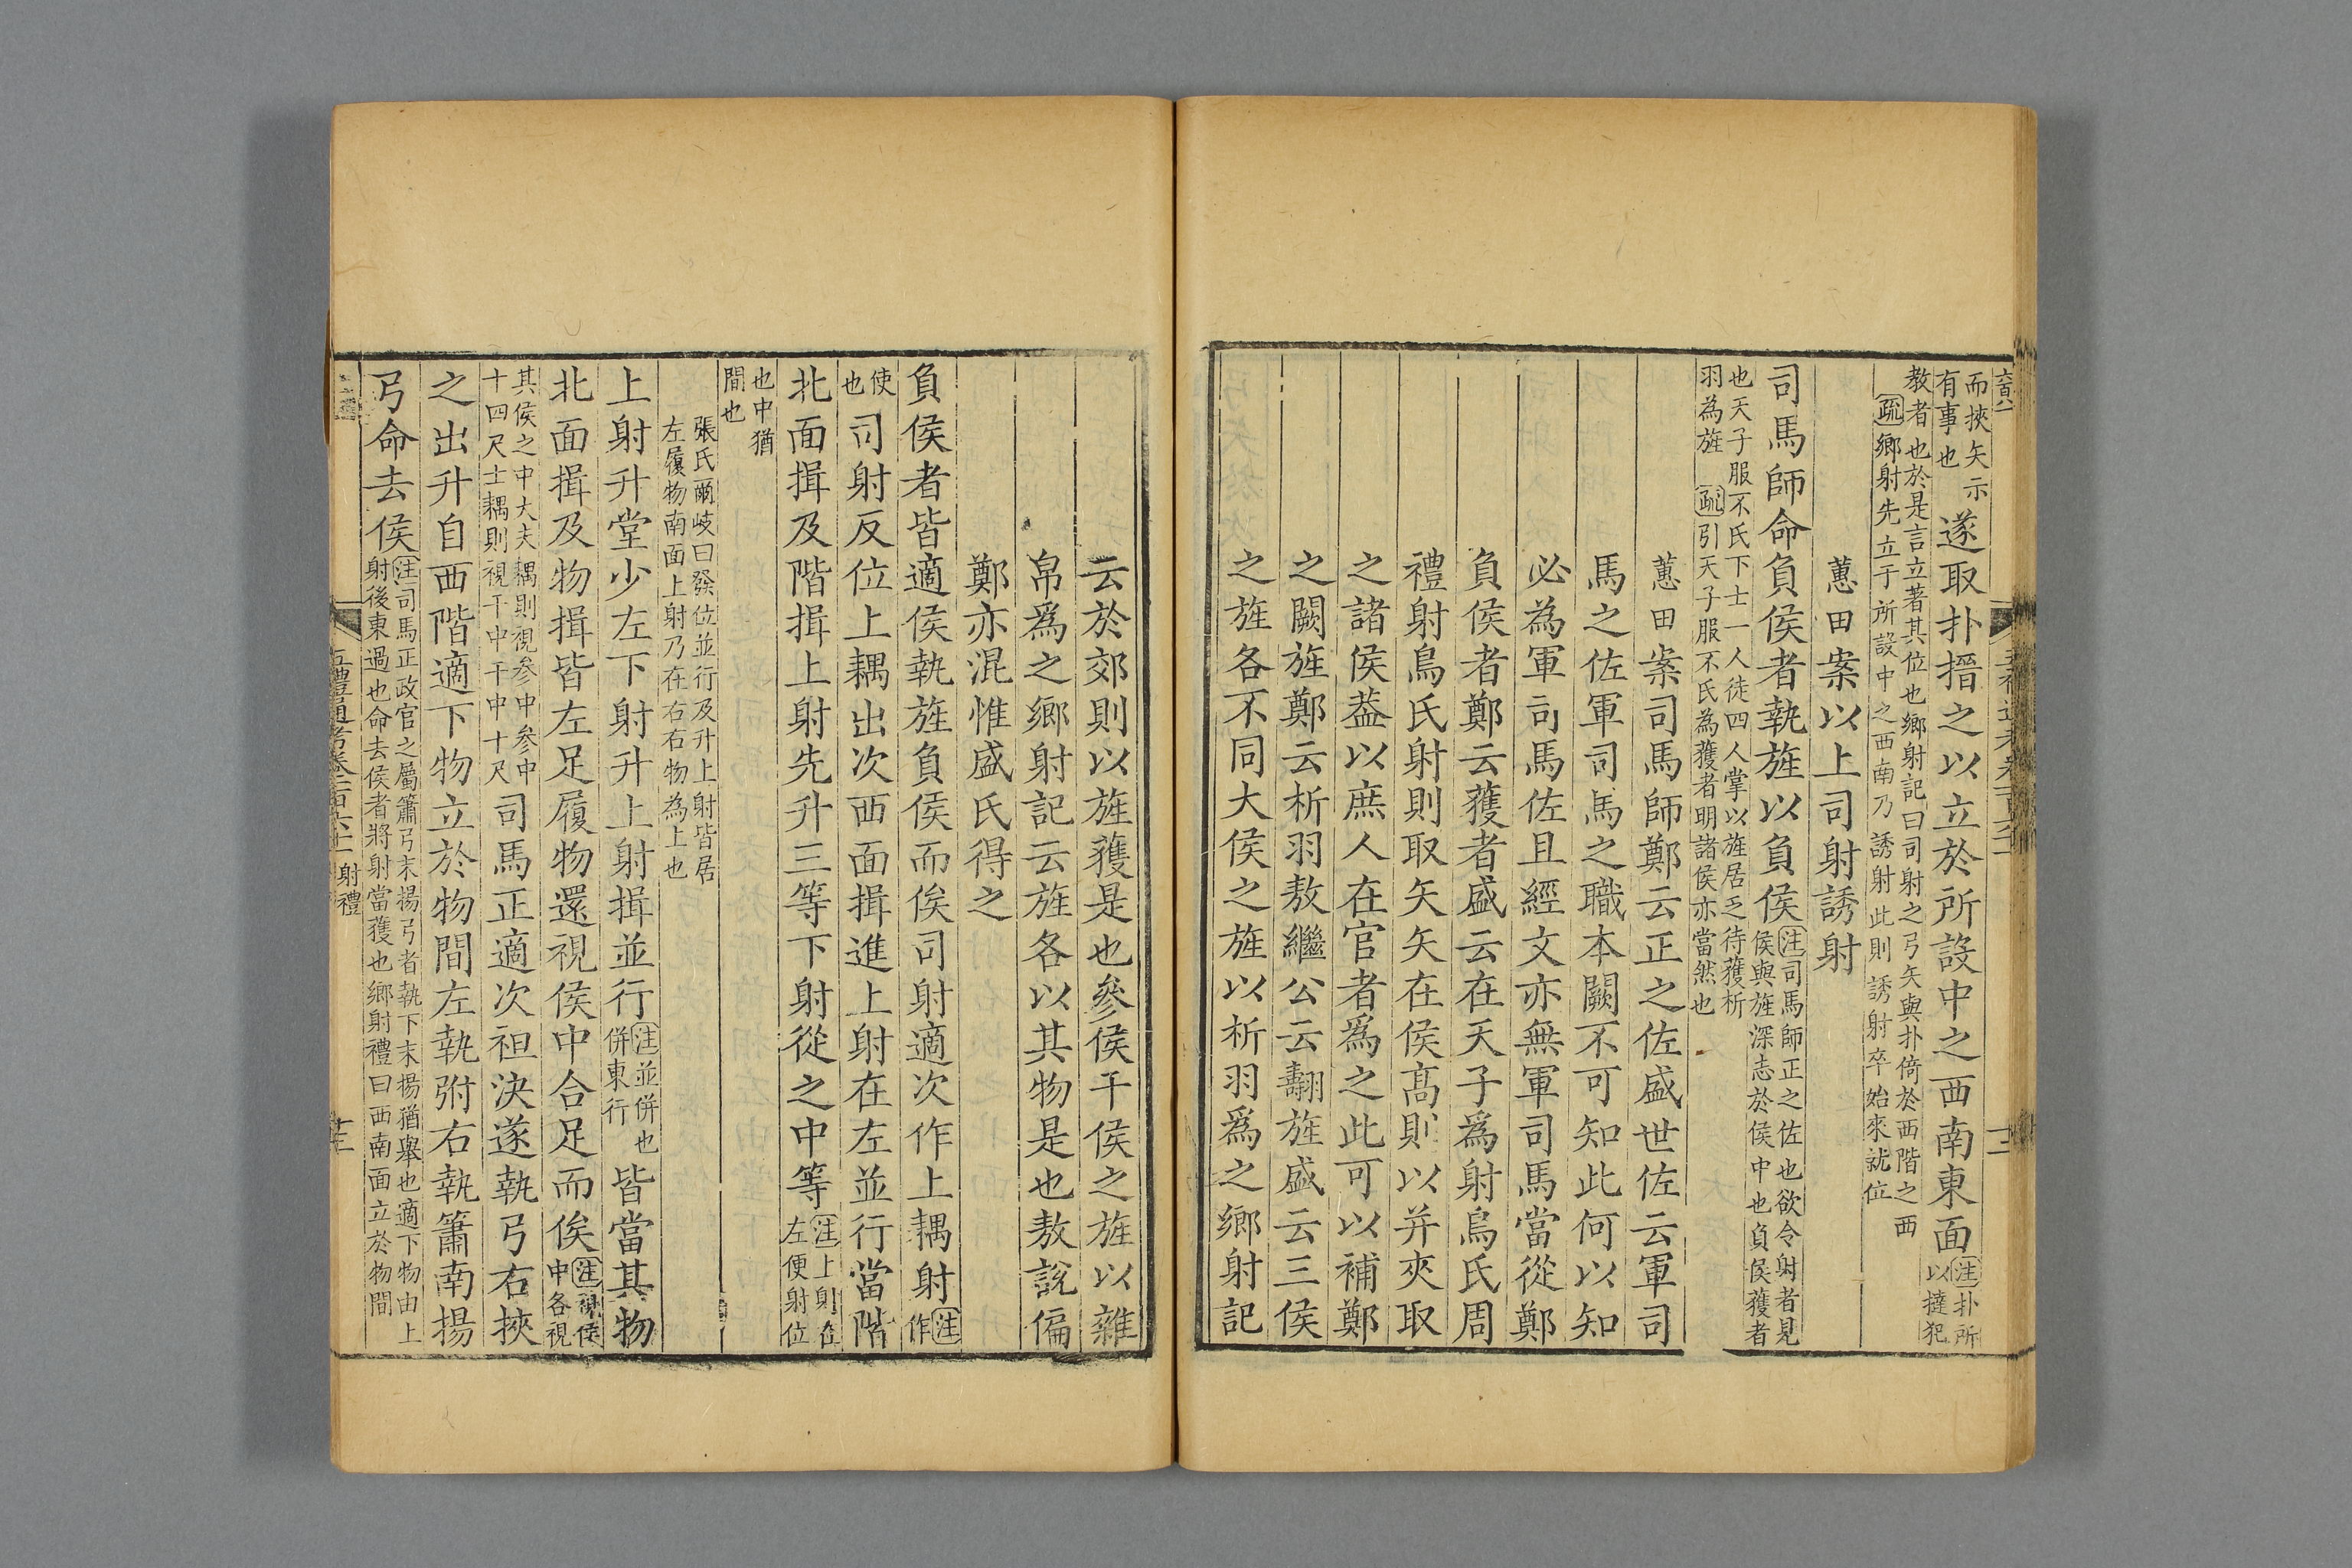 而挾矢示
有事也
遂取扑搢之以立於所設中之西南東面
注扑所
以撻犯
教者也於是言立著其位也鄉射記曰司射之弓矢與扑倚於西階之西
疏鄉射先立于所設中之西南乃誘射此則誘射卒始來就位
蕙田案以上司射誘射
司馬師命負侯者執旌以負侯
注司馬師正之佐也欲令射者見
侯與旌深志於侯中也負侯獲者
也天子服不氏下士一人徒四人掌以旌居乏待獲析
羽為旌 疏引天子服不氏為獲者明諸侯亦當然也
蕙田案司馬師鄭云正之佐盛世佐云軍司
馬之佐軍司馬之職本闕不可知此何以知
必為軍司馬佐且經文亦無軍司馬當從鄭
負侯者鄭云獲者盛云在天子爲射鳥氏周
禮射鳥氏射則取矢矢在侯高則以并夾取
之諸侯葢以庶人在官者爲之此可以補鄭
之闕旌鄭云析羽敖繼公云翿旌盛云三侯
之旌各不同大侯之旌以析羽爲之鄉射記
云於郊則以旌獲是也參侯干侯之旌以雜
帛爲之鄉射記云旌各以其物是也敖說偏
鄭亦混惟盛氏得之
負侯者皆適侯執旌負侯而俟司射適次作上耦射
注
作
使
也
司射反位上耦出次西面揖進上射在左並行當階
北面揖及階揖上射先升三等下射從之中等
注上射在
左便射位
也中猶
間也
張氏爾岐曰發位並行及升上射皆居
左履物南面上射乃在右右物為上也
上射升堂少左下射升上射揖並行
注並併也
併東行
皆當其物
北面揖及物揖皆左足履物還視侯中合足而俟
注視侯
中各視
其侯之中大夫耦則視參中參中
十四尺士耦則視干中干中十尺
司馬正適次袒決遂執弓右挾
之出升自西階適下物立於物間左執弣右執簫南揚
弓命去侯
注司馬正政官之屬簫弓末揚弓者執下末揚猶舉也適下物由上
射後東過也命去侯者將射當獲也鄉射禮曰西南面立於物間
五禮通考卷一百六十二 射禮